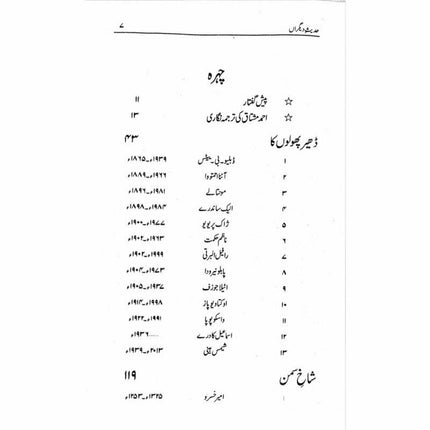 حدیثِ دیگراں ۷
چہرہ
☆ پیش گفتار ۱۱
☆ احمد مشتاق کی ترجمہ نگاری ۱۳
ڈھیر پھولوں کا ۴۳
۱ ڈبلیو۔بی۔ییٹس ۱۸۶۵ء۔۱۹۳۹ء
۲ آننا اخمتووا ۱۸۸۹ء۔۱۹۶۶ء
۳ مونتالے ۱۸۹۶ء۔۱۹۸۱ء
۴ الیک ساندرے ۱۸۹۸ء۔۱۹۸۴ء
۵ ژاک پریویو ۱۹۰۰ء۔۱۹۷۷ء
۶ ناظم حکمت ۱۹۰۲ء۔۱۹۶۳ء
۷ رافیل البرتی ۱۹۰۲ء۔۱۹۹۹ء
۸ پابلو نیرودا ۱۹۰۴ء۔۱۹۷۳ء
۹ اتیلا جوزف ۱۹۰۵ء۔۱۹۳۷ء
۱۰ اوکتاویو پاز ۱۹۱۴ء۔۱۹۹۸ء
۱۱ واسکو پوپا ۱۹۲۲ء۔۱۹۹۱ء
۱۲ اسماعیل کادرے ۱۹۳۶ء......
۱۳ شیمس ہینی ۱۹۳۹ء۔۲۰۱۳ء
شاخِ سمن ۱۱۹
۱ امیر خسرو ۱۲۵۳ء۔۱۳۲۵ء